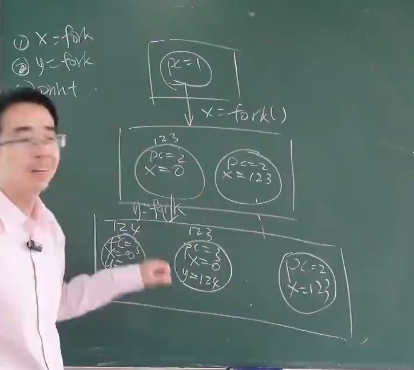 ① x = fork
② y = fork
print
pc=1
x = fork()
123
pc=2
x=0
pc=2
x=123
y=fork
124
pc=
x=0
y=0
123
pc=3
x=0
y=124
pc=2
x=123